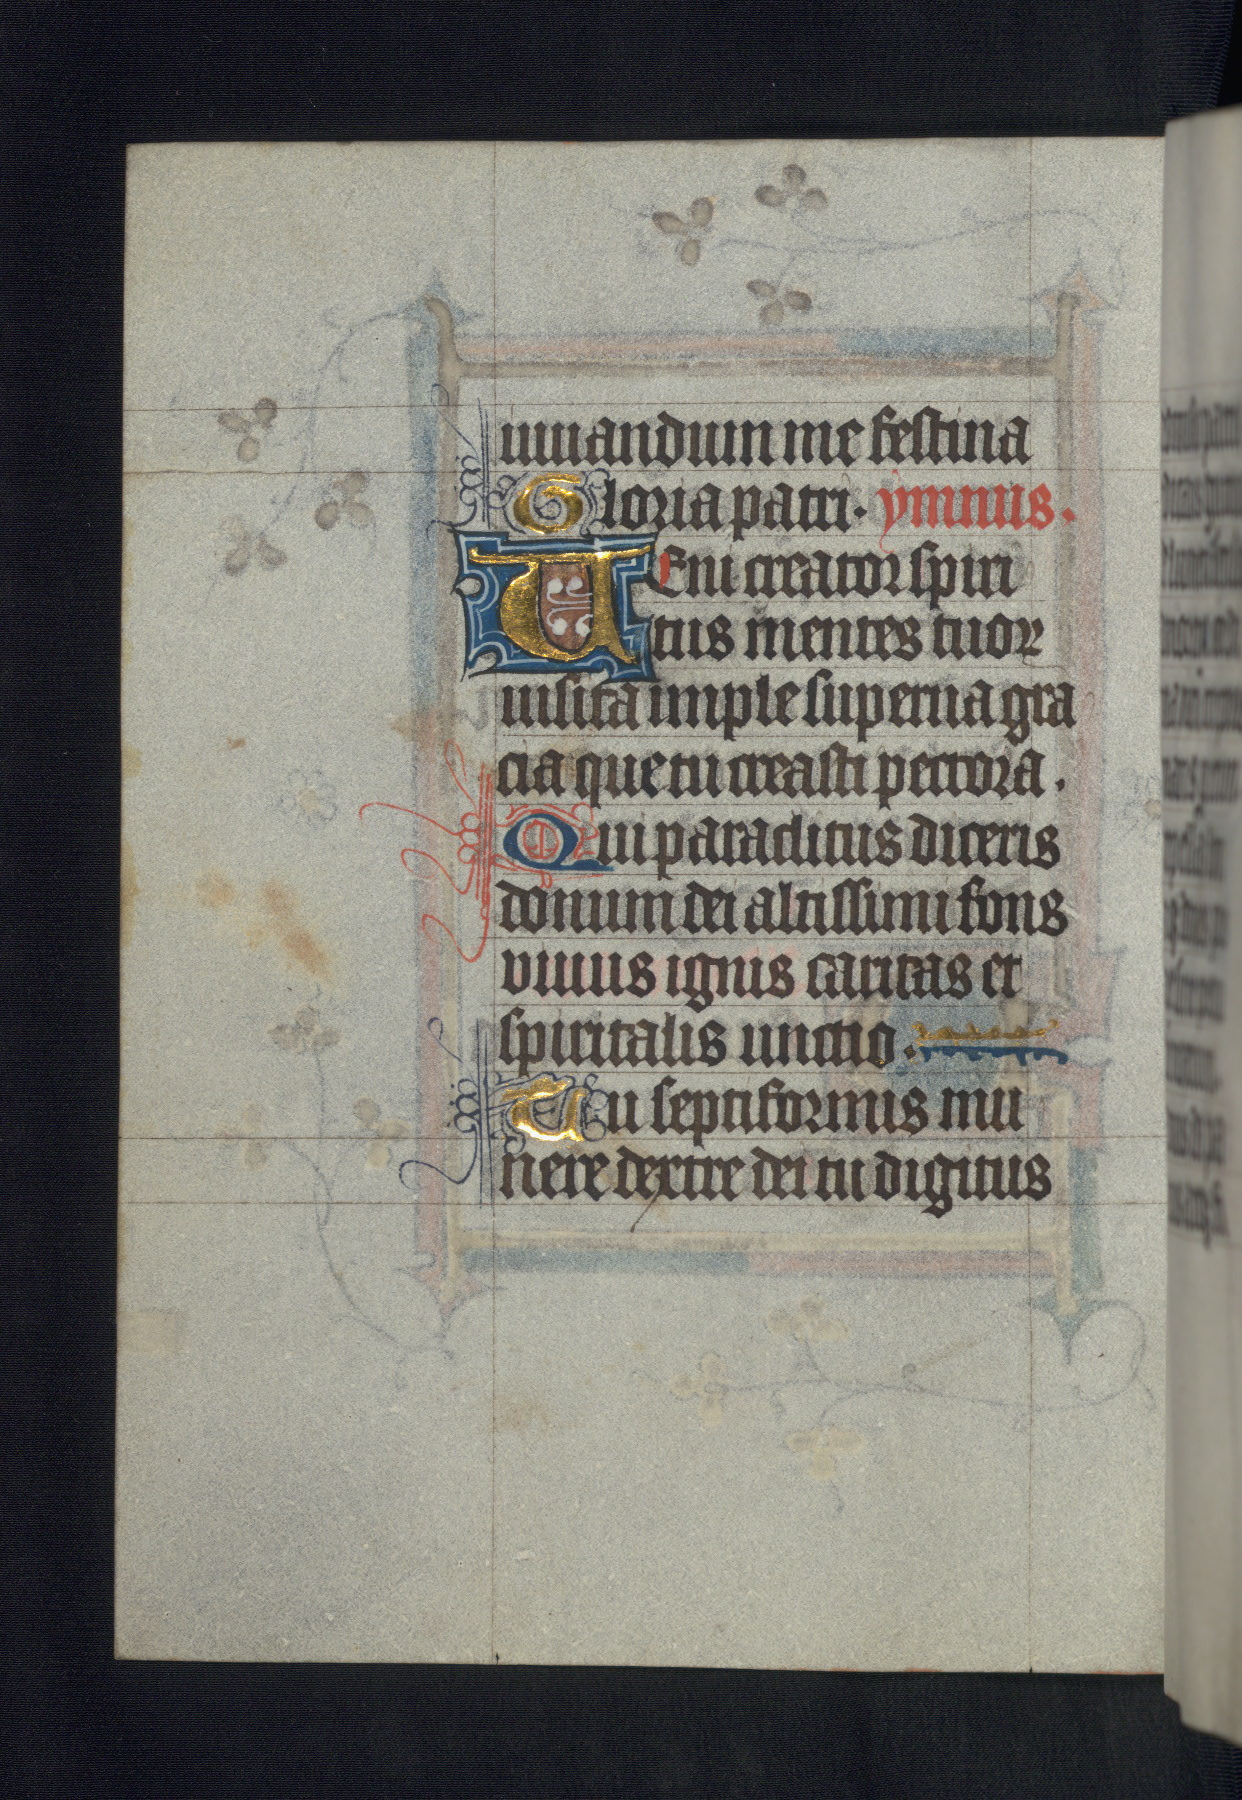 iuuandum me festina
Gloria patri. ymnus.
UEni creator spiri
tus mentes tuor
uisita imple superna gra
cia que tu creasti pectora.
Qui paraclitus diceris
donum dei altissimi fons
viuus ignis caritas et
spiritalis unctio.
Tu septiformis mu
nere dextre dei tu digitus